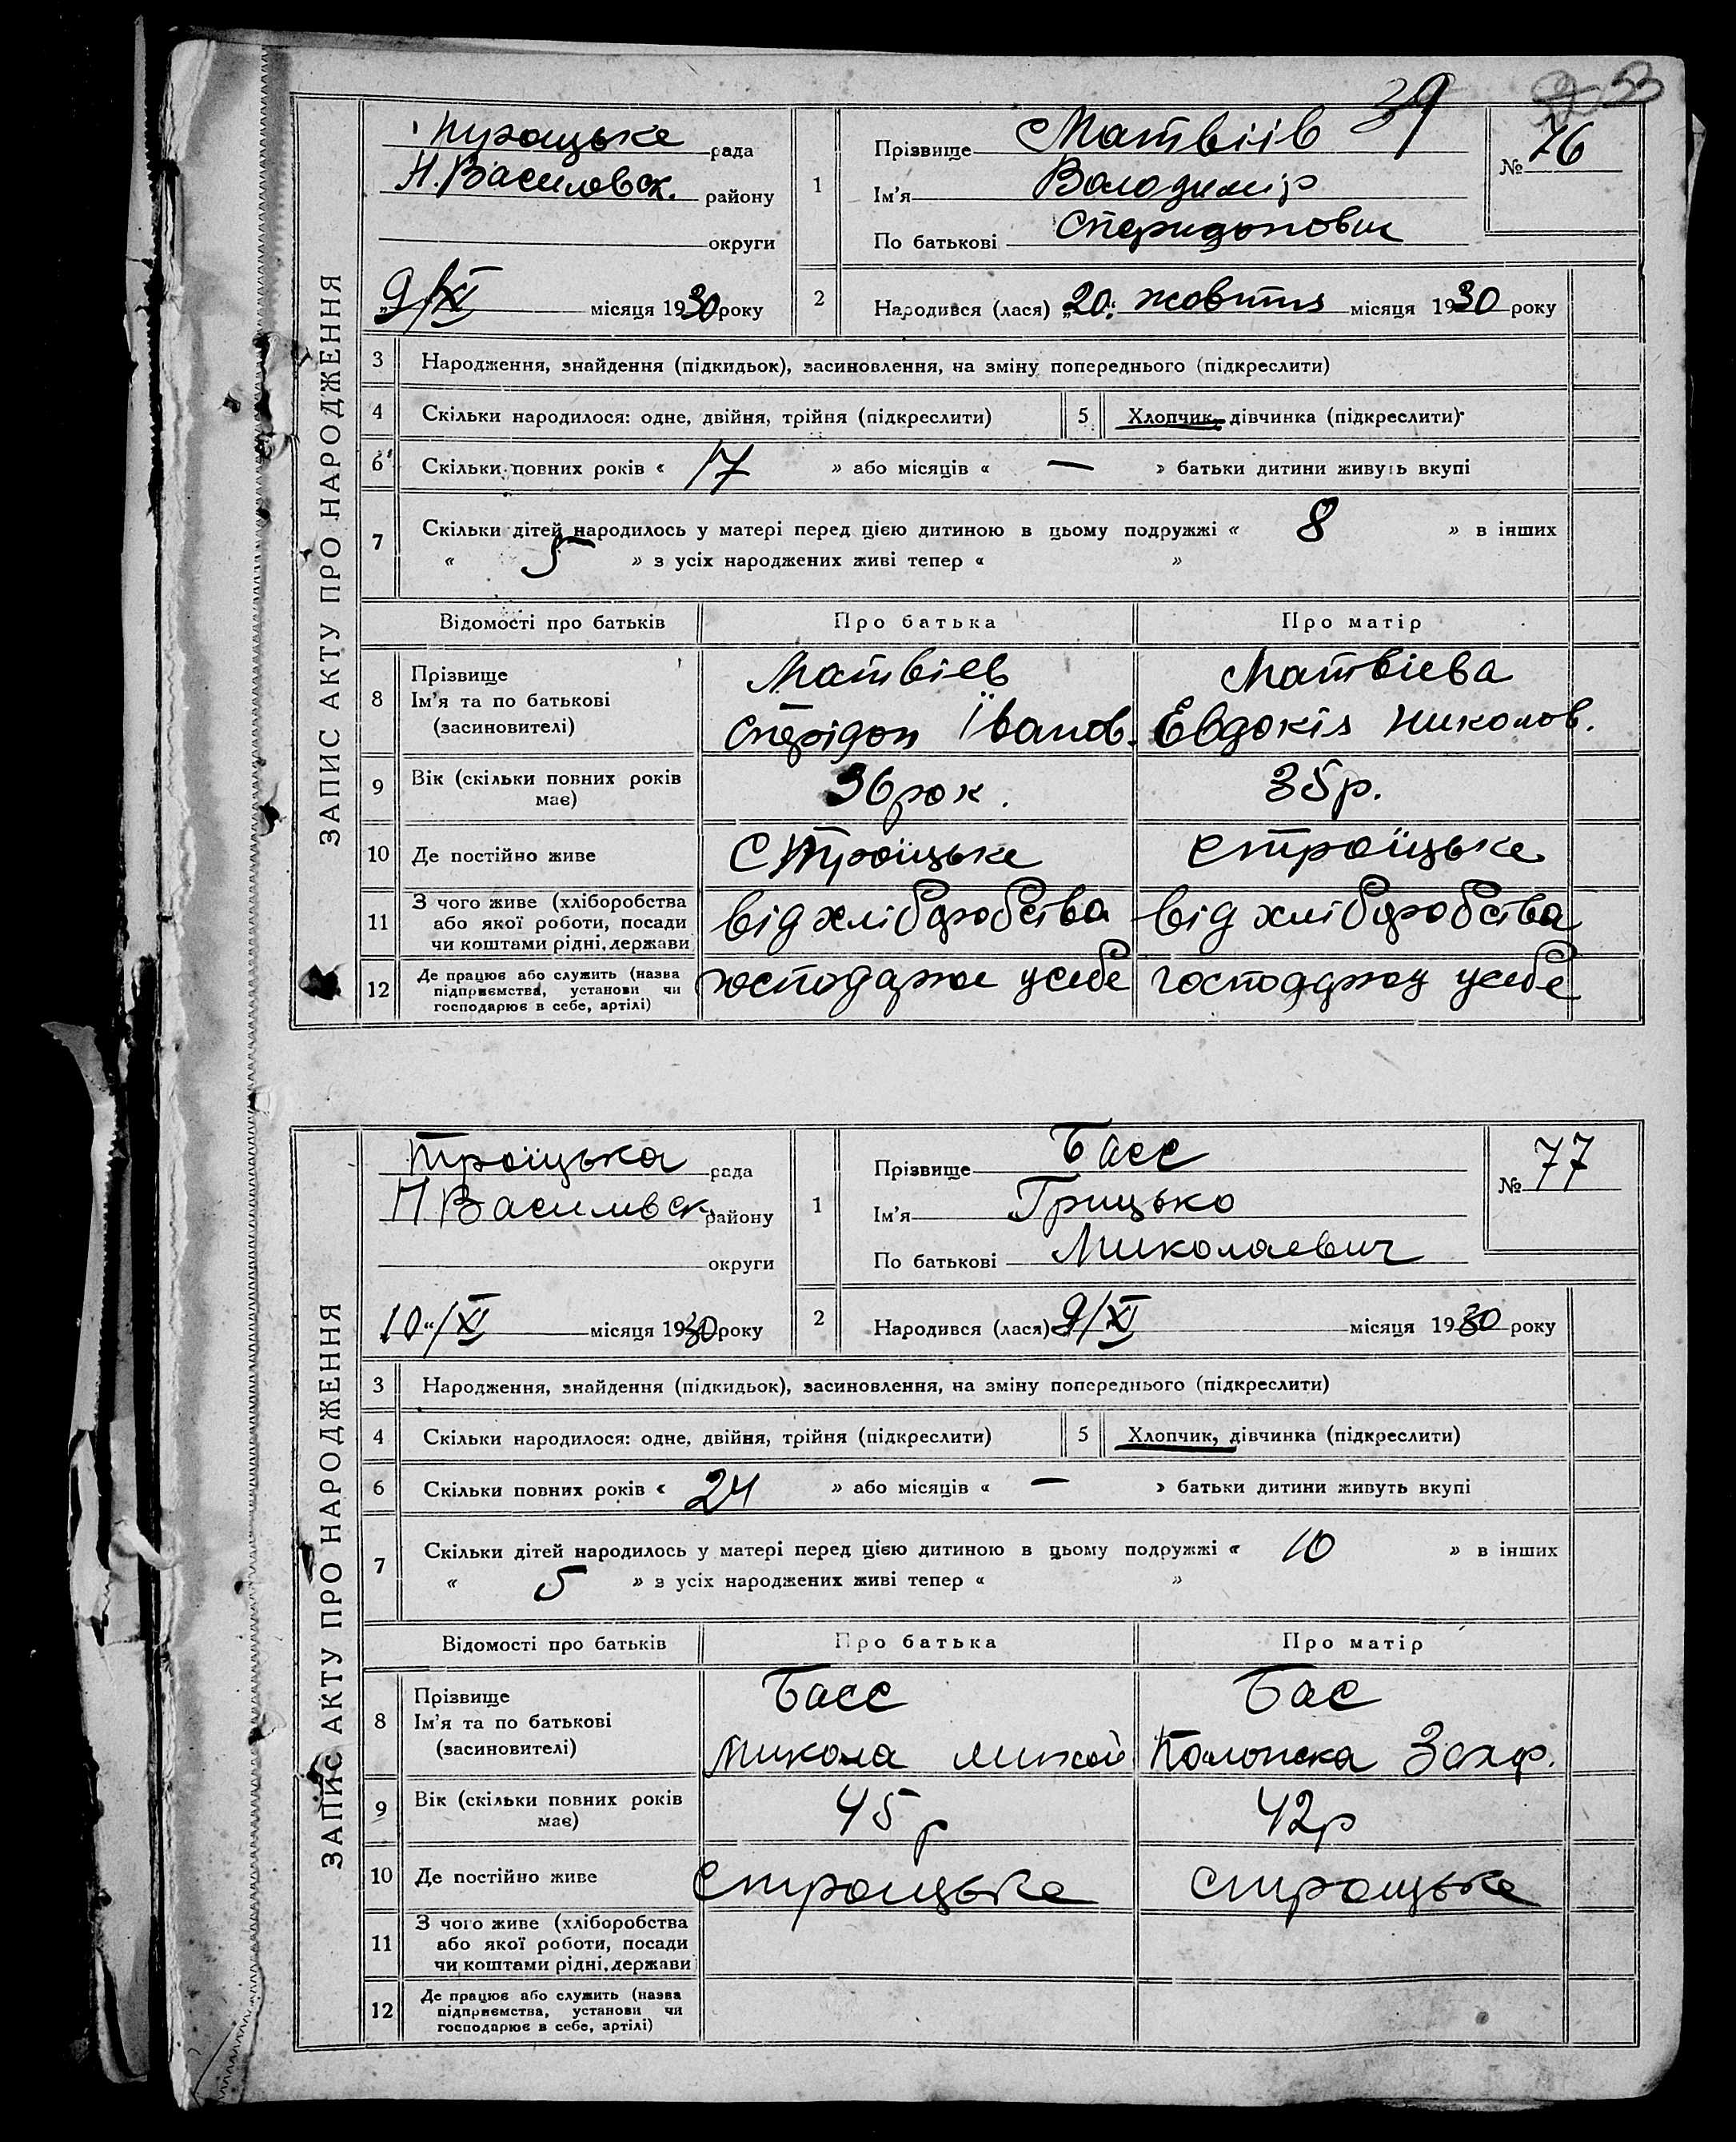 39
53
ЗАПИС АКТУ ПРО НАРОДЖЕННЯ
Троіцьке рада
Н. Василевск. району
округи
„9/XI місяця 1930 року
1
Прізвище Матвіів
Ім'я Володимір
По батькові Спиридонович
№ 76
2
Народився (лася) „20" жовтня місяця 1930 року
3 Народження, знайдення (підкидьок), засиновлення, на зміну попереднього (підкреслити)
4 Скільки народилося: одне, двійня, трійня (підкреслити)
5 Хлопчик, дівчинка (підкреслити)
6 Скільки повних років « 17 » або місяців « — » батьки дитини живуть вкупі
7 Скільки дітей народилось у матері перед цією дитиною в цьому подружжі « 8 » в інших
« 5 » з усіх народжених живі тепер « »
Відомості про батьків Про батька Про матір
8 Прізвище
Ім'я та по батькові
(засновителі)
Матвіев
Спірідон Іванов.
Матвіева
Евдокія Николов.
9 Вік (скільки повних років
має)
36 рок.
35 р.
10 Де постійно живе С Троїцьке с троїцьке
11 З чого живе (хліборобства
або якої роботи, посади
чи коштами рідні, держави
від хліборобства
від хліборобства
12 Де працює або служить (назва
підприємства, установи чи
господарює в себе, артілі)
господарює усебе
усебе
ЗАПИС АКТУ ПРО НАРОДЖЕННЯ
Троіцька рада
П Василивск. району
округи
10"/XI місяця 1930 року
1
Прізвище Басс
Ім'я Грицько
По батькові Миколаевич
№ 77
2
Народився (лася) 9/XI місяця 1930 року
3 Народження, знайдення (підкидьок), засиновлення, на зміну попереднього (підкреслити)
4 Скільки народилося: одне, двійня, трійня (підкреслити)
5 Хлопчик, дівчинка (підкреслити)
6 Скільки повних років « 24 » або місяців « — » батьки дитини живуть вкупі
7 Скільки дітей народилось у матері перед цією дитиною в цьому подружжі « 10 » в інших
« 5 » з усіх народжених живі тепер « »
Відомості про батьків Про батька Про матір
8 Прізвище
Ім'я та по батькові
(засиновителі)
Басс
Микола
Бас
Захар.
9 Вік (скільки повних років
має)
45 р
42 р
10 Де постійно живе с троицьке с троицьке
11 З чого живе (хліборобства
або якої роботи, посади
чи коштами рідні, держави
12 Де працює або служить (назва
підприємства, установи чи
господарює в себе, артілі)